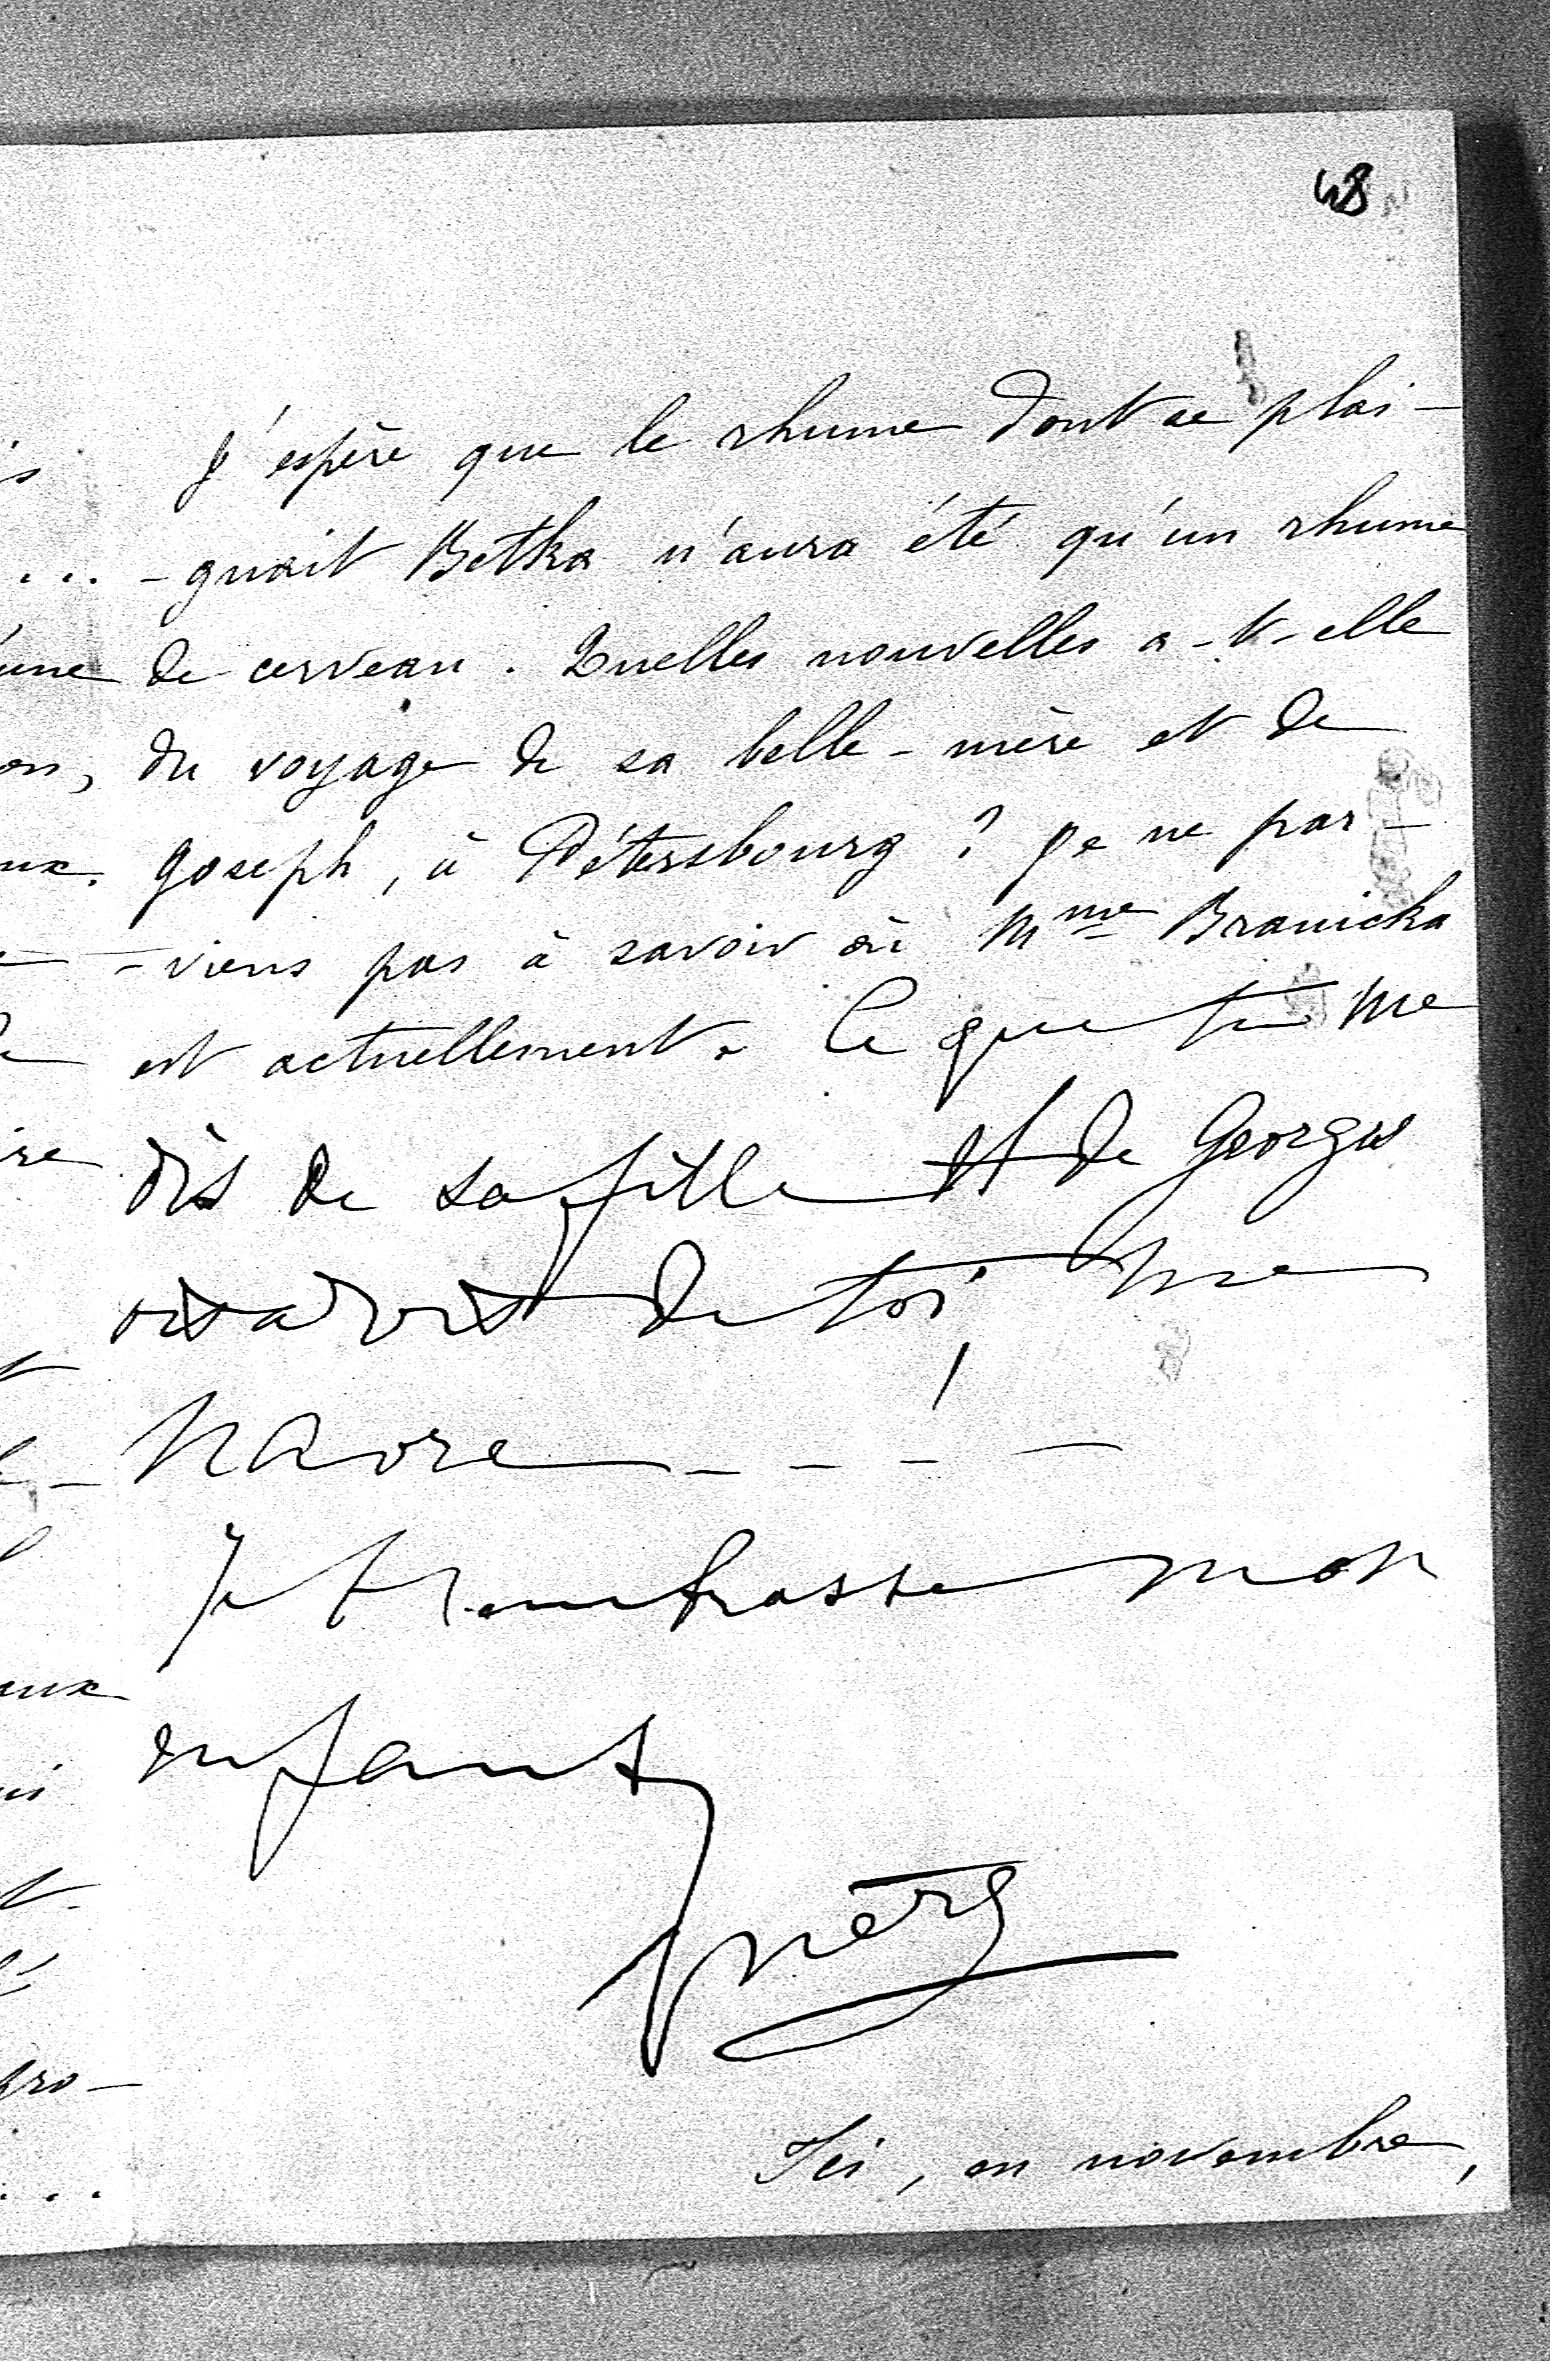 48
J'espère que le rhume dont se plai-
-gnait Betka n'aura été qu'un rhume
de cerveau. Quelles nouvelles a-t-elle
du voyage de sa belle-mère et de
Joseph, à Pétersbourg ? Je ne par-
-viens pas à savoir où Mme Branicka
est actuellement. Ce que tu me
dis de sa fille et de Georges
vis à vis de toi, me
navre - - - -
Je t'embrasse mon
enfant
Ici, en novembre,